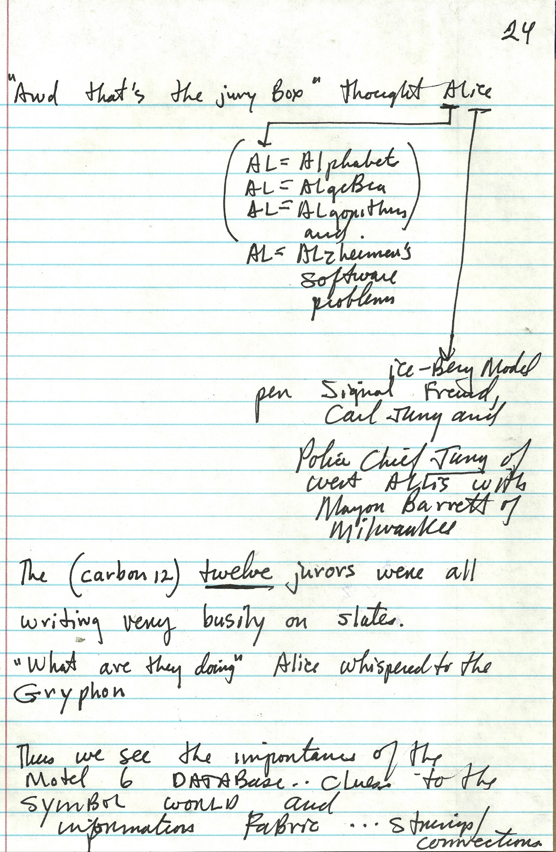 24
"And that's the jury Box" thought Alice
AL = Alphabets
AL = AlgeBra
AL = ALgorithms
and.
AL = ALzheimer's
software
problems
ice-Berg Model
pen Signal Freud,
Carl Jung and
Police Chief Jung of
west ALLis with
Mayor Barrett of
Milwaukee
The (carbon 12) twelve jurors were all
writing very busily on slates.
"What are they doing" Alice whispered to the
Gryphon
Thus we see the importance of the
Motel 6 DATABase.. clues to the
SymBol WORLD and
informations FaBric ... strings/
connections